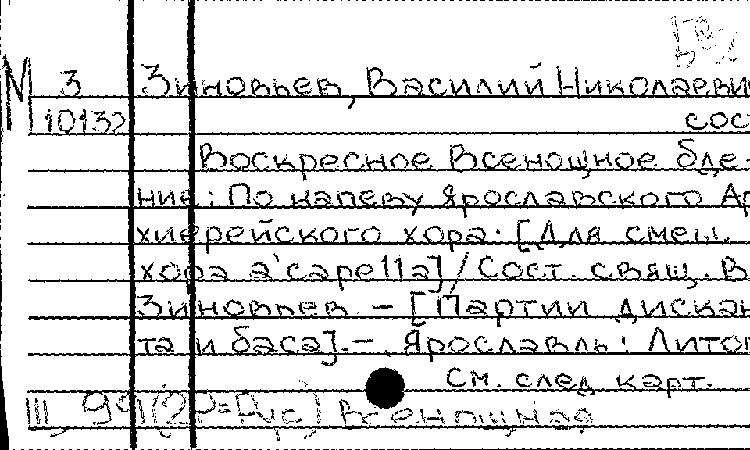 М 3 Зиновьев, Василий Николаеви
10132 сос
Воскресное Всенощное бде-
ние: По напеву Ярославского Ар
хиерейского хора: [Для смеш.
хора a'capella] / Сост. свящ. В
Зиновьев - [Партии дискан
та и баса]. -. Ярославль: Литог
См. след карт.
III, 9 Всенощная